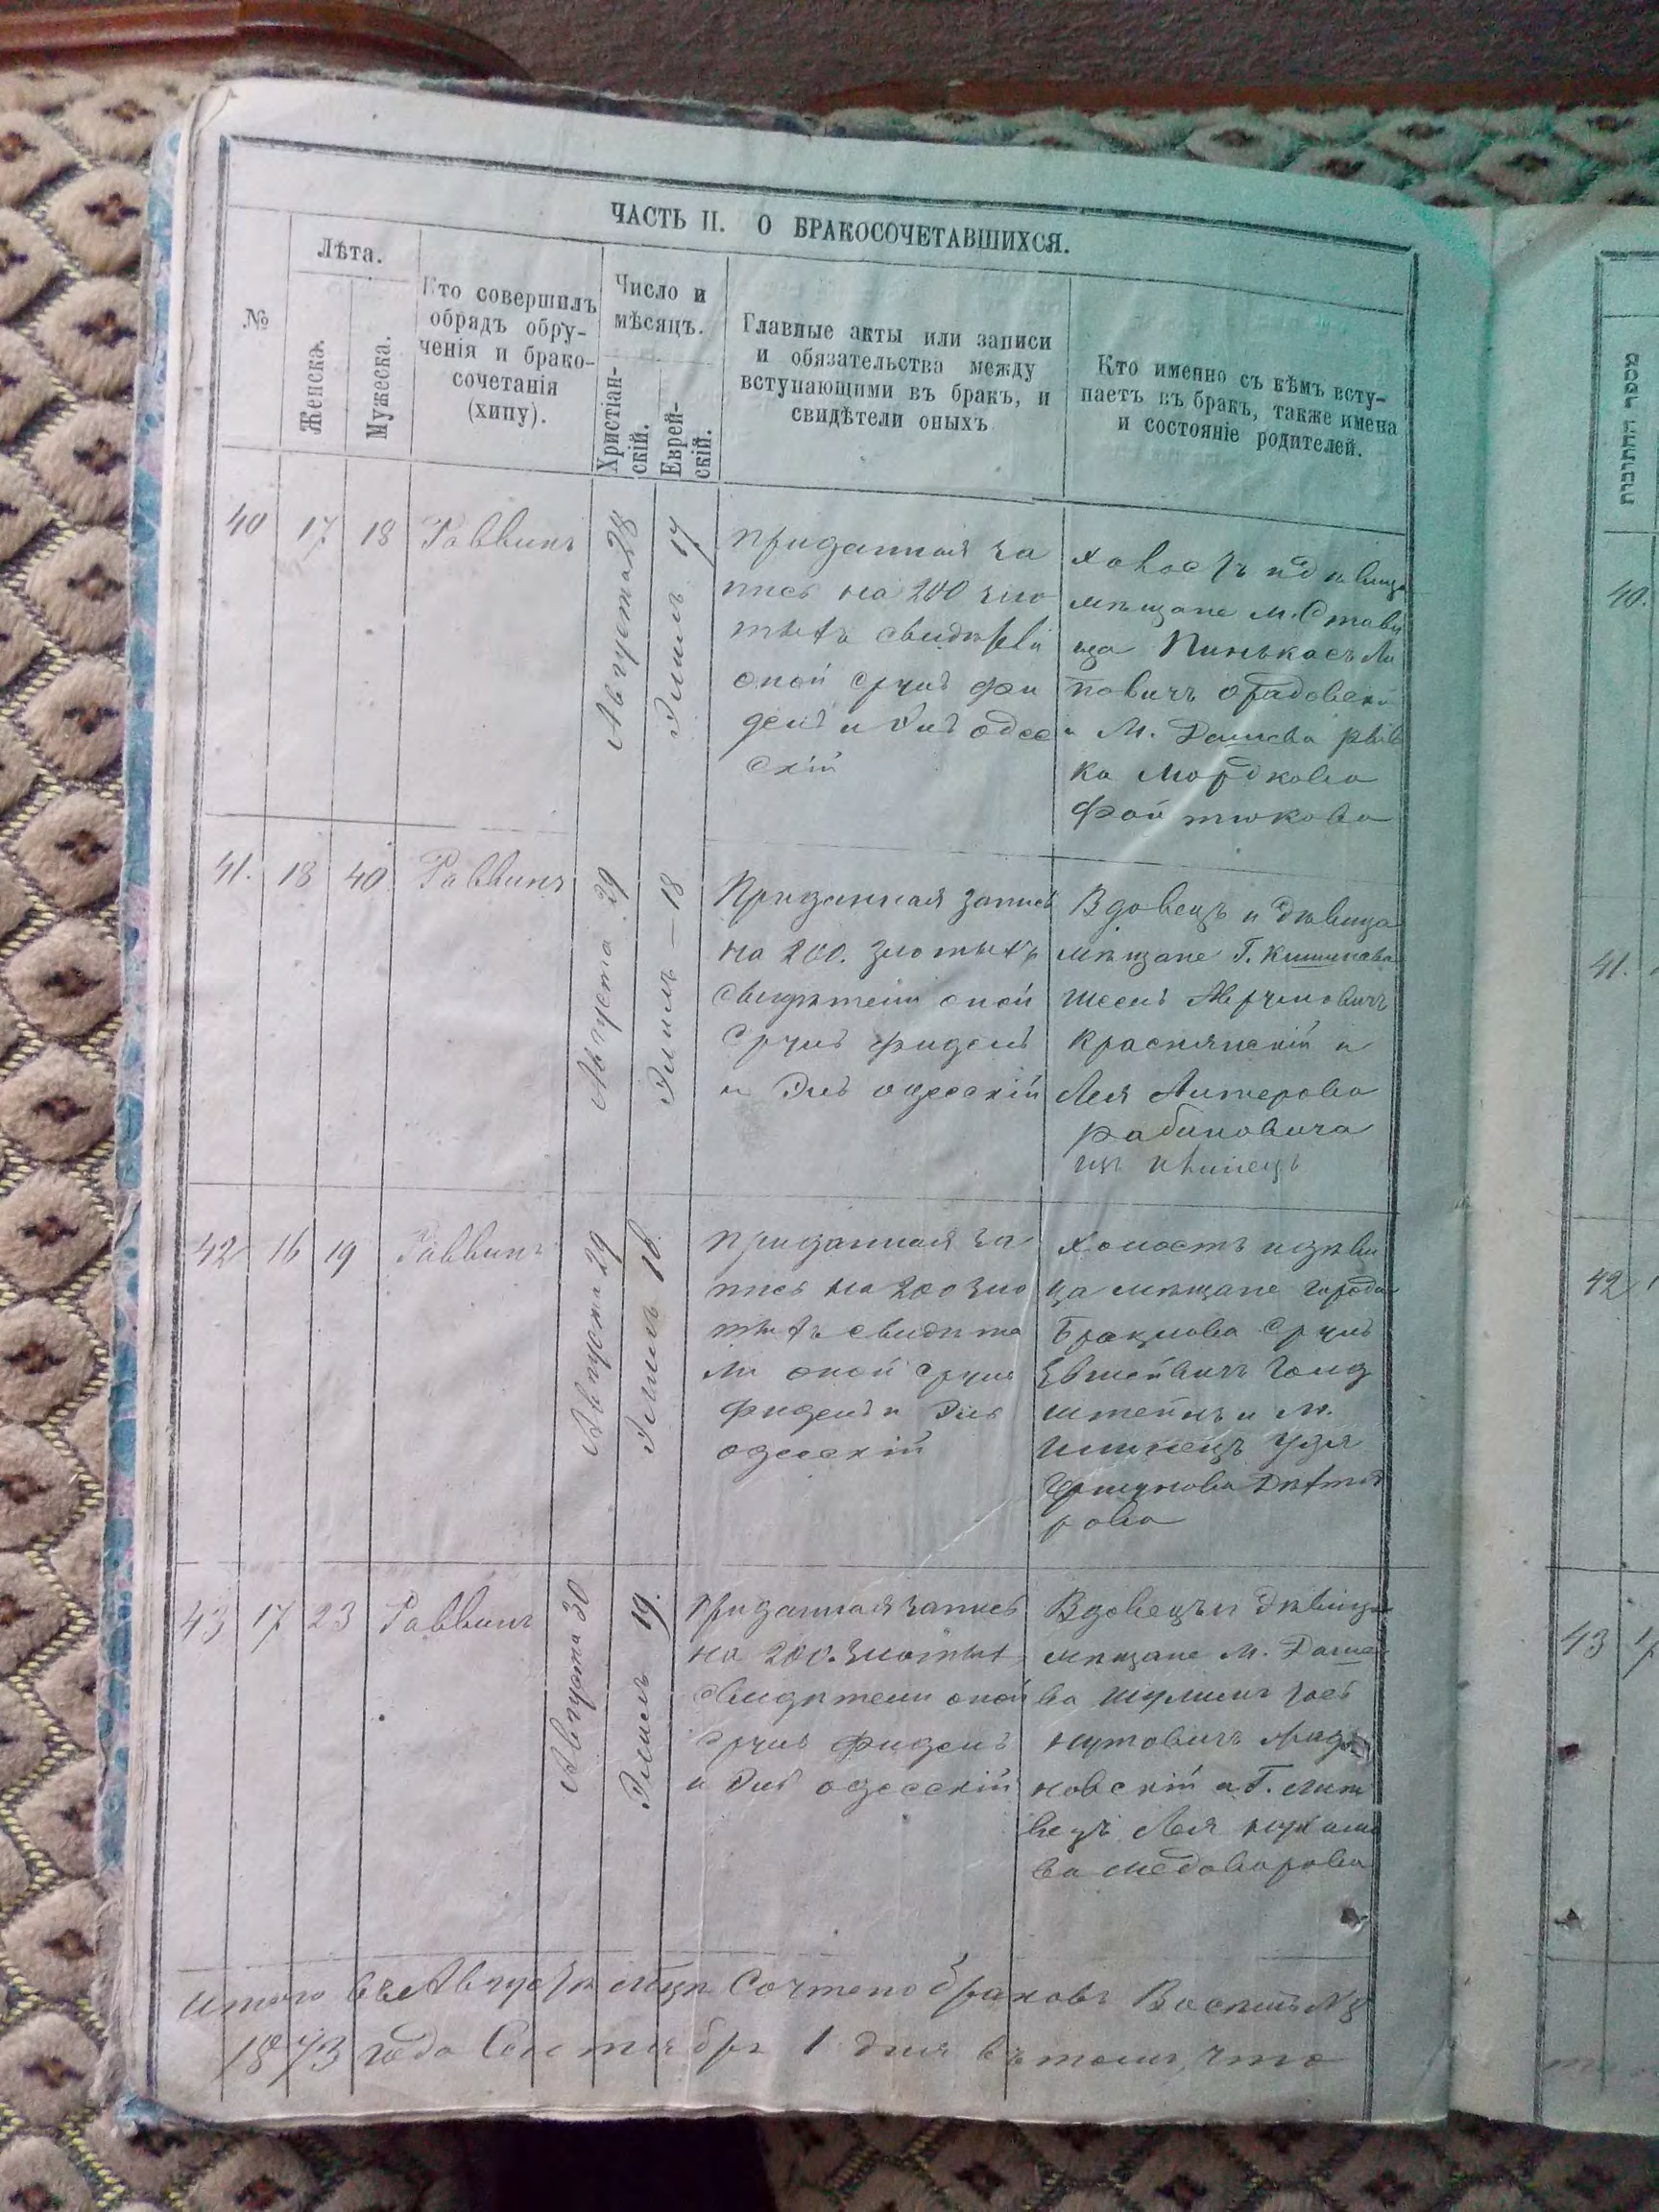 ЧАСТЬ II. О БРАКОСОЧЕТАВШИХСЯ.
№
Лѣта.
Женска.
Мужеска.
Кто совершилъ
обрядъ обру-
ченія и брако-
сочетанія
(хипу).
Число и
мѣсяцъ.
Христіан-
скій.
Еврей-
скій.
Главные акты или записи
и обязательства между
вступающими въ бракъ, и
свидѣтели оныхъ
Кто именно съ кѣмъ всту-
паетъ въ бракъ, также имена
и состояніе родителей.
40 17 18 Раввинъ
Августа 28
Элилъ 17
приданная за
пись на 200 зло
тыхъ свидѣтели
оной Сруль Фи
дель и Эль одес
скій
холостъ и дѣвица
мѣщане м. Стави
ща Пинькасъ Ли
повичъ
и М. Дашева Рыв
ка Мордкова
Фойтикова
41. 18 40 Раввинъ
Августа 29
Элилъ - 18
Приданная запись
на 200. злотыхъ
свидѣтели оной
Сруль Фидель
и Эль одесскій
Вдовецъ и дѣвица
мѣщане Г. Кишинева
Краснянскій и
Лея
Рабиновича
42 16 19 Раввинъ
Августа 29
Элилъ 18.
приданная за
пись на 200 зло
тыхъ свидѣте
ли оной Сруль
Фидель и Эль
одесскій
Холостъ и дѣви
ца мѣщане города
Брацлова Сруль
Голд
штейнъ и м.
43 17 23 Раввинъ
Августа 30
Элилъ 19.
приданная запись
на 200. злотых
свидѣтели оной
Сруль Фидель
и Эль одесскій
Вдовецъ и дѣвица
мѣщане м. Даше
ва
новскій и Г. Лит
вецъ Лея
ва Медоварова
итого въ Августѣ мцѣ Сочтено браковъ Восемь № 8
1873 года Сентября 1 дня въ томъ, что
מספר החתונות
40.
41.
42
43